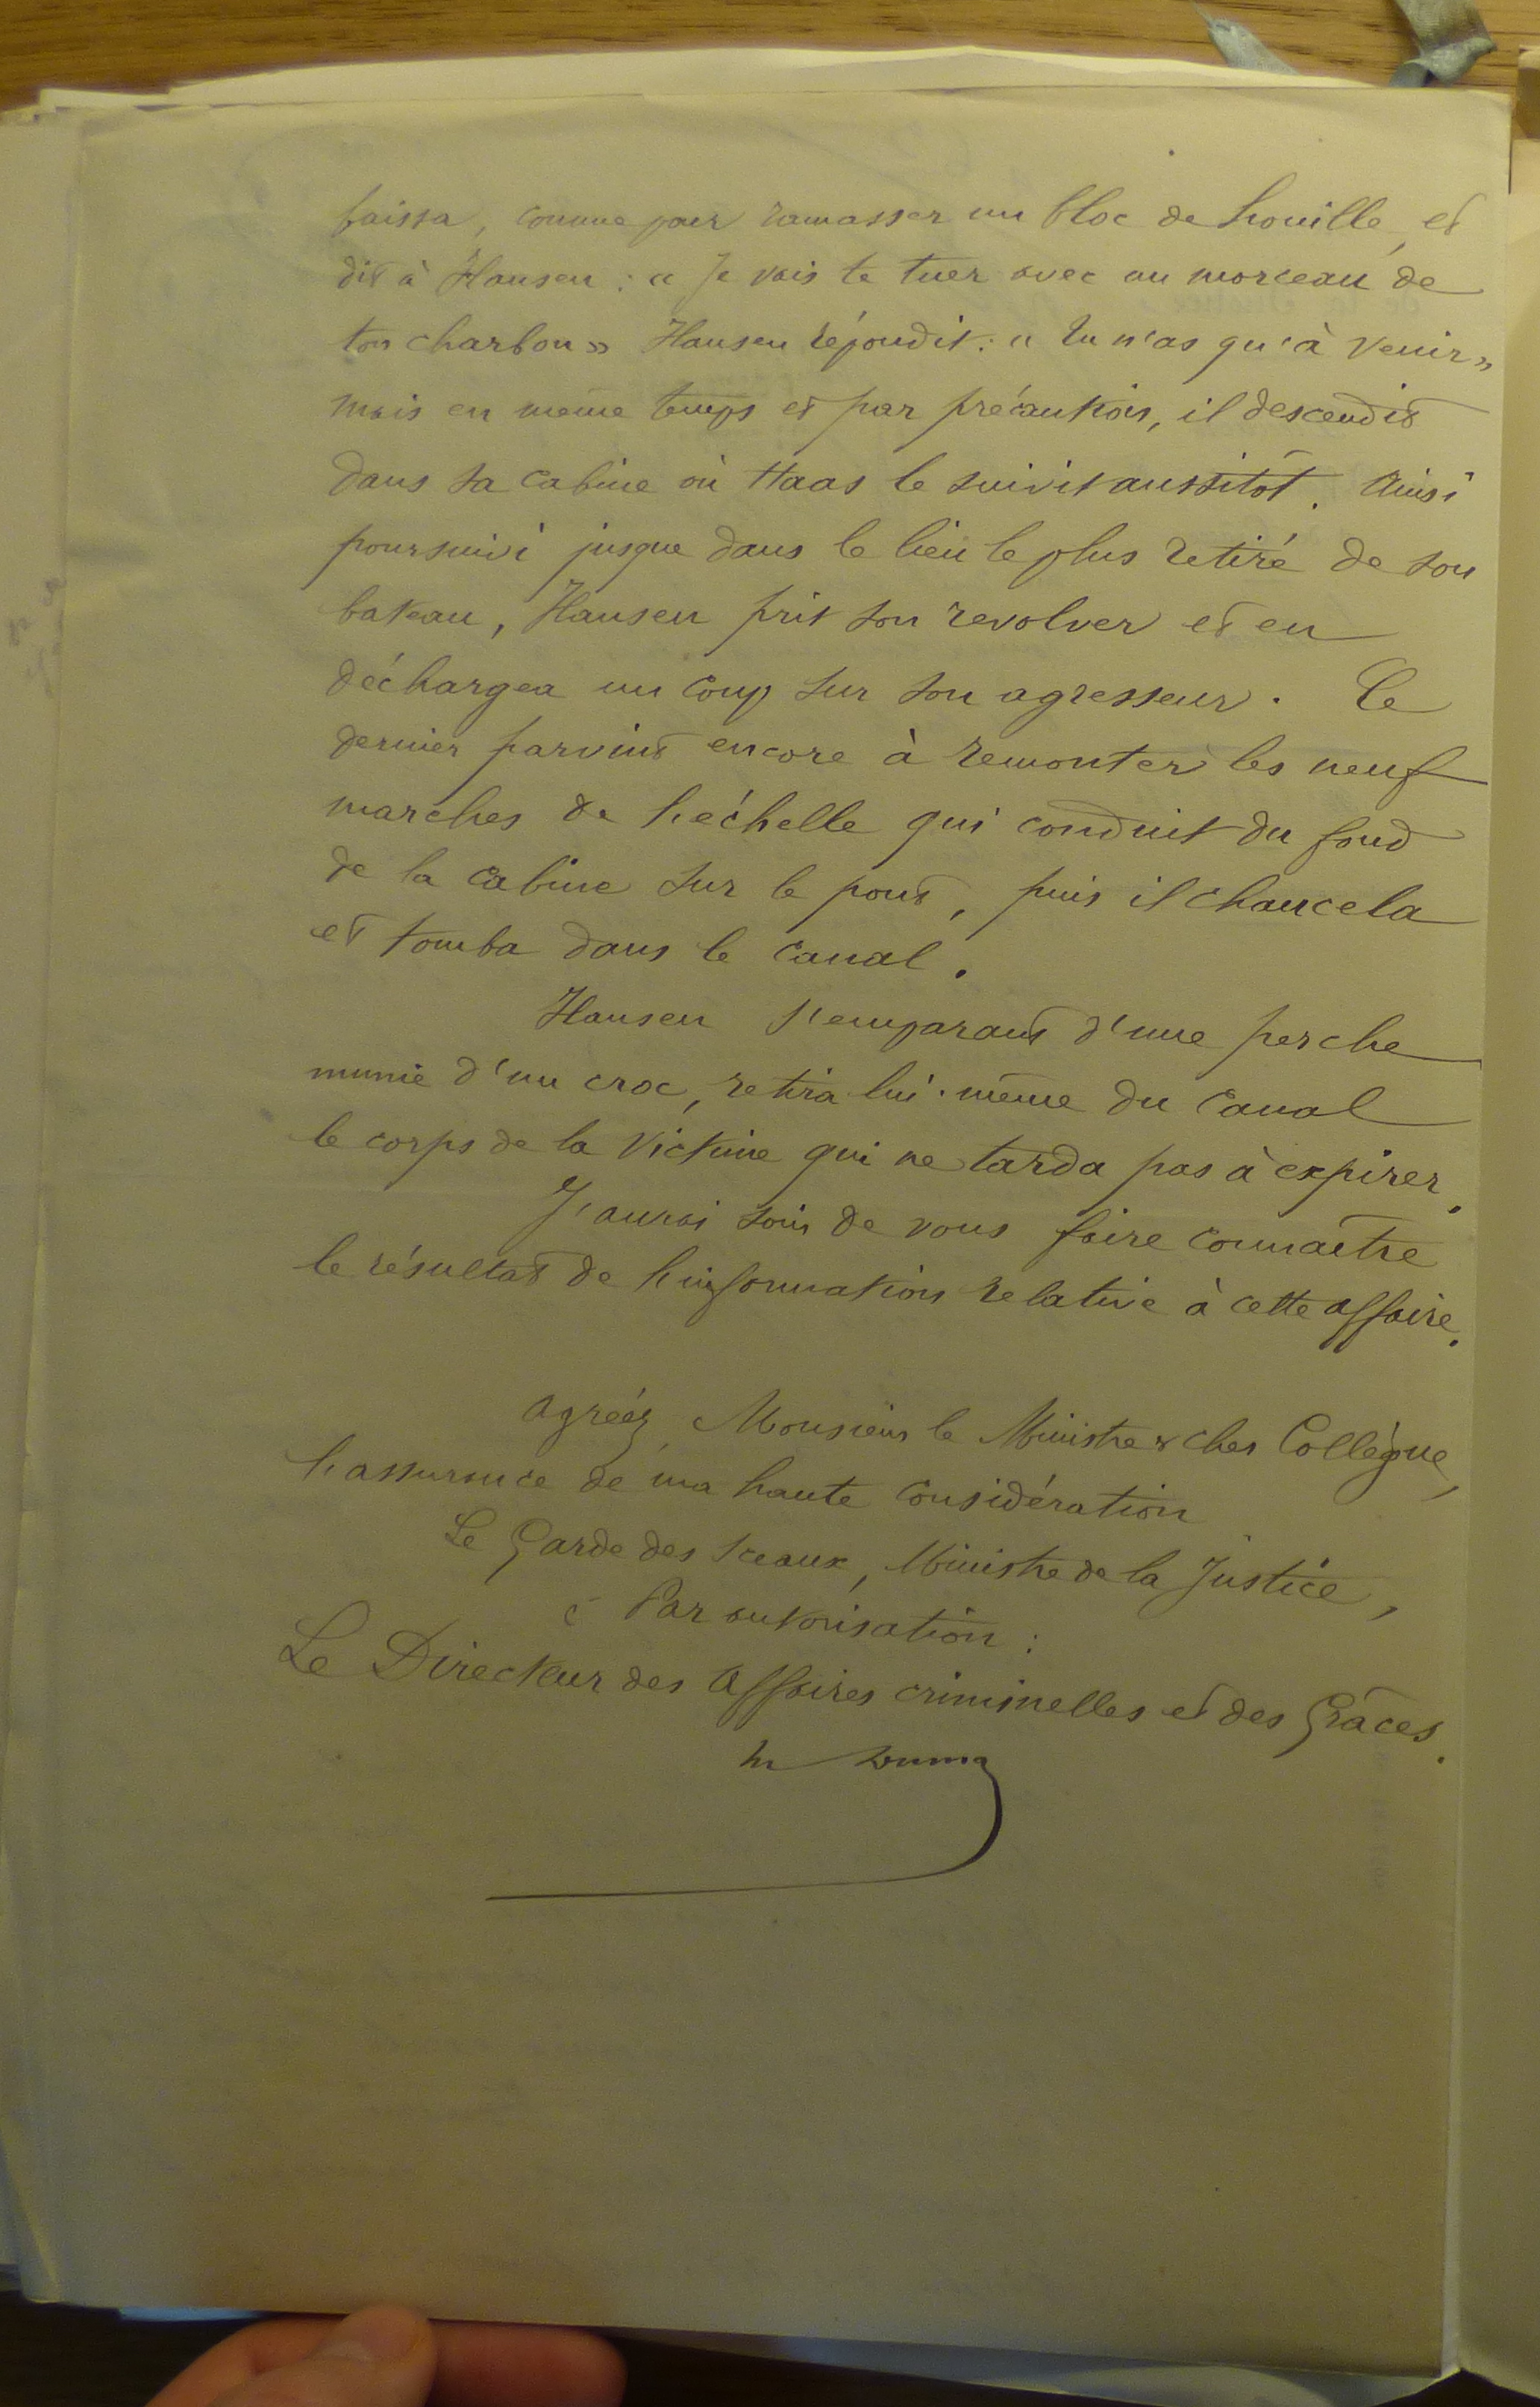 baissa, comme pour ramasser un bloc de houille, et
dit à Hansen : « Je vais te tuer avec un morceau de
ton charbon » Hansen répondit : « Tu n'as qu'à venir »
mais en même temps et par précaution, il descendit
dans sa cabine où Haas le suivit aussitôt. Ainsi
poursuivi jusque dans le lieu le plus retiré de son
bateau, Hansen prit son revolver et en
déchargea un coup sur son agresseur. Ce
dernier parvint encore à remonter les neuf
marches de l'échelle qui conduit du fond
de la cabine sur le pont, puis il chancela
et tomba dans le canal.
Hansen s'emparant d'une perche
munie d'un croc, retira lui-même du canal
le corps de la victime qui ne tarda pas à expirer.
J'aurai soin de vous faire connaître
le résultat de l'information relative à cette affaire.
Agréez, Monsieur le Ministre & cher Collègue,
l'assurance de ma haute considération
Le Garde des Sceaux, Ministre de la Justice,
Par autorisation :
Le Directeur des Affaires criminelles et des Grâces.